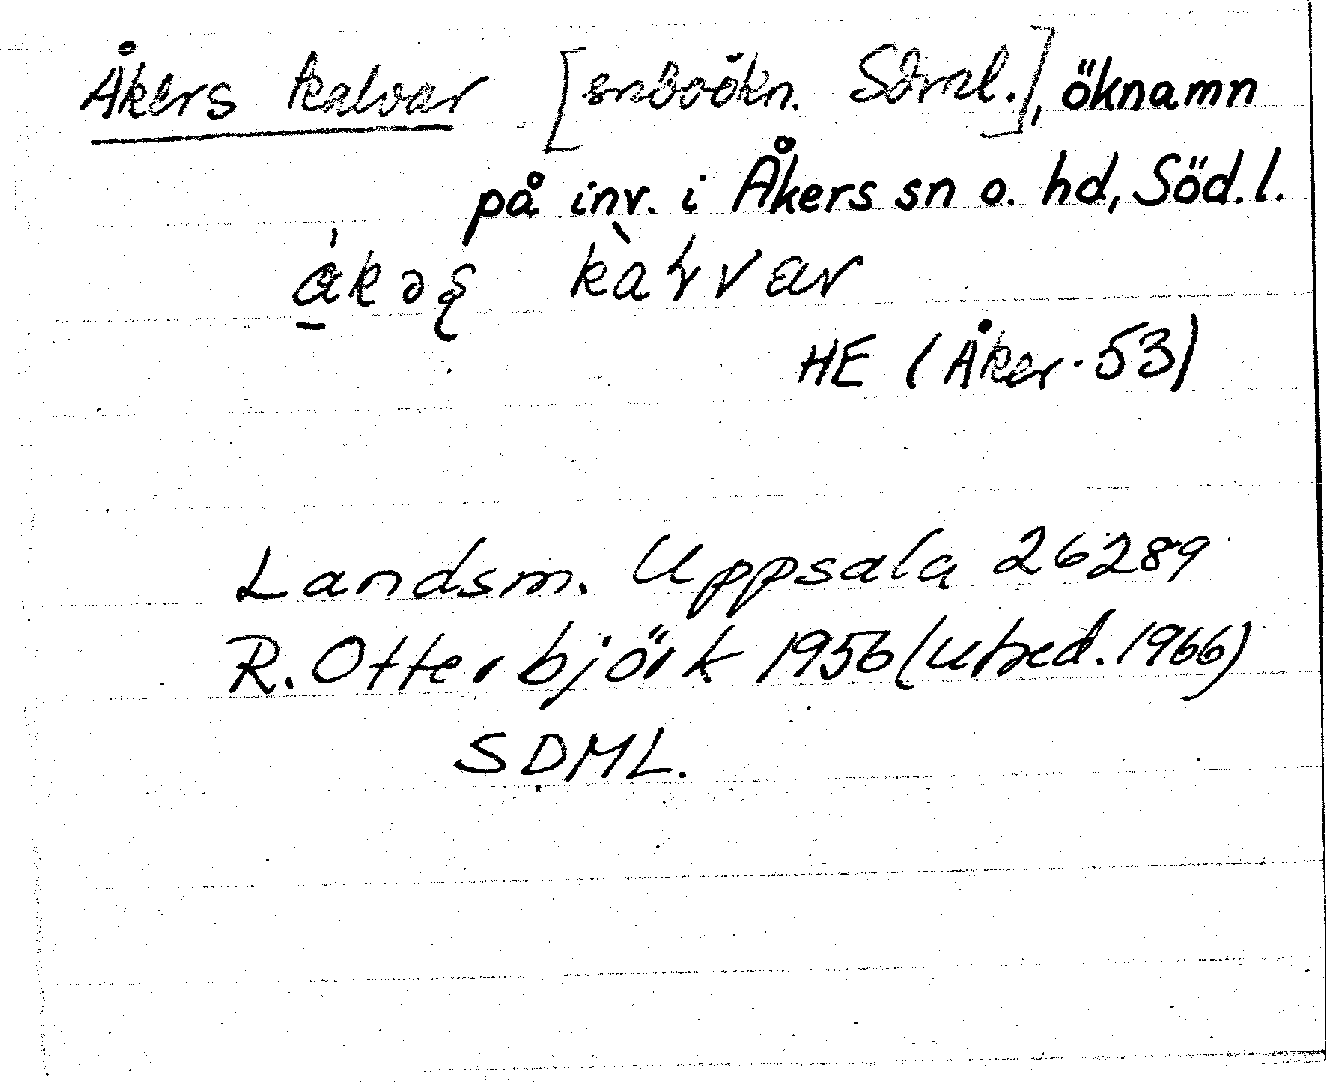 Åkers kalvar [snboökn. Sörml.], öknamn
på inv. i Åkers sn o. hd, Söd.l.
HE (Åker. 53)
Landsm. Uppsala 26289
R. Otterbjörk 1956 (utred. 1966)
SDML.